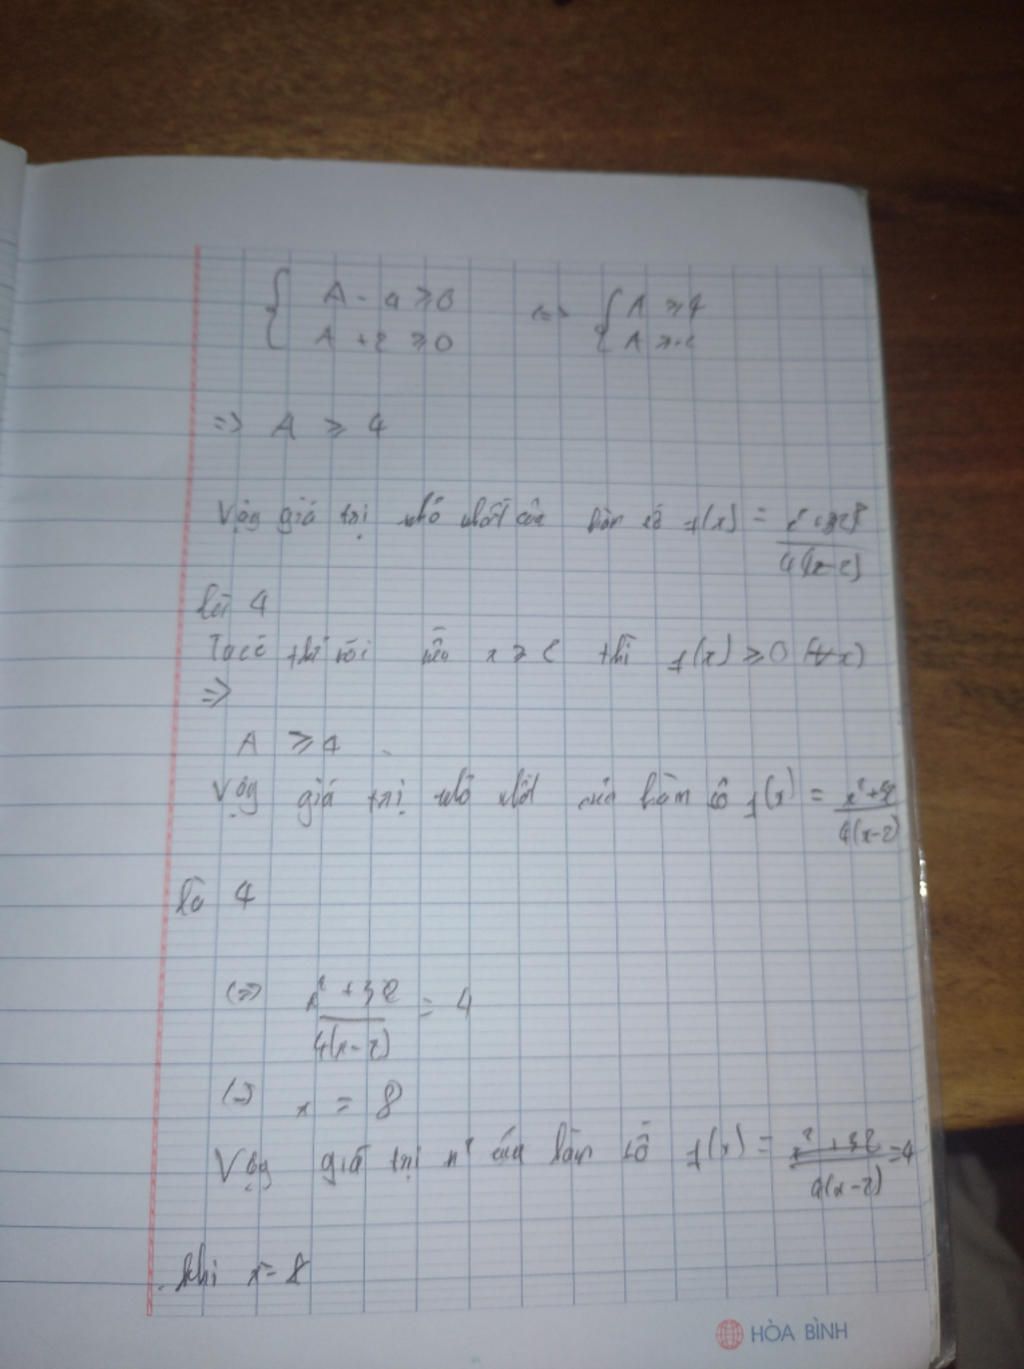 { A - 4 ≥ 0 <=> { A ≥ 4
A + 2 ≥ 0 A ≥ -2
=> A ≥ 4
Vậy giá trị nhỏ nhất của hàm số f(x) = x² + 32 / 4(x-2)
là 4
Ta có thể nói nếu x > 2 thì f(x) ≥ 0 (∀x)
=>
A ≥ 4
Vậy giá trị nhỏ nhất của hàm số f(x) = x² + 32 / 4(x-2)
là 4
(=) x² + 32 / 4(x-2) = 4
(=) x = 8
Vậy giá trị n² của hàm số f(x) = x² + 32 / 4(x-2) = 4
khi x = 8
HÒA BÌNH